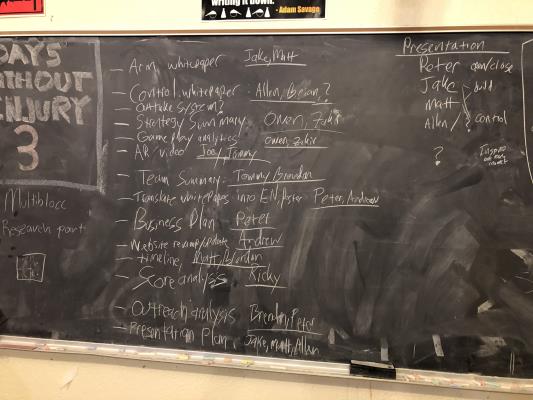 writing it down."
- Adam Savage
DAYS
WITHOUT
INJURY
3
Multiblocc
Research
- Arm whitepaper Jake, Matt
- Control whitepaper : Allen, Brian, ?
- Outtake system?
- Strategy Summary Owen, Zakir
- Game play analytics Owen, Zakir
- AR video Joe/Tommy
- Team Summary - Tommy/Brendan
- Translate whitepapers into EN, Peter, Andrew
- Business Plan - Peter
- Website revamp/update Andrew
- timeline, Matt/Brendan
- Score analysis - Ricky
- Outreach analysis Brendan, Peter
- Presentation Plan, Jake, Matt, Allen
Presentation
Peter open/close
Jake build
Matt
Allen control
?